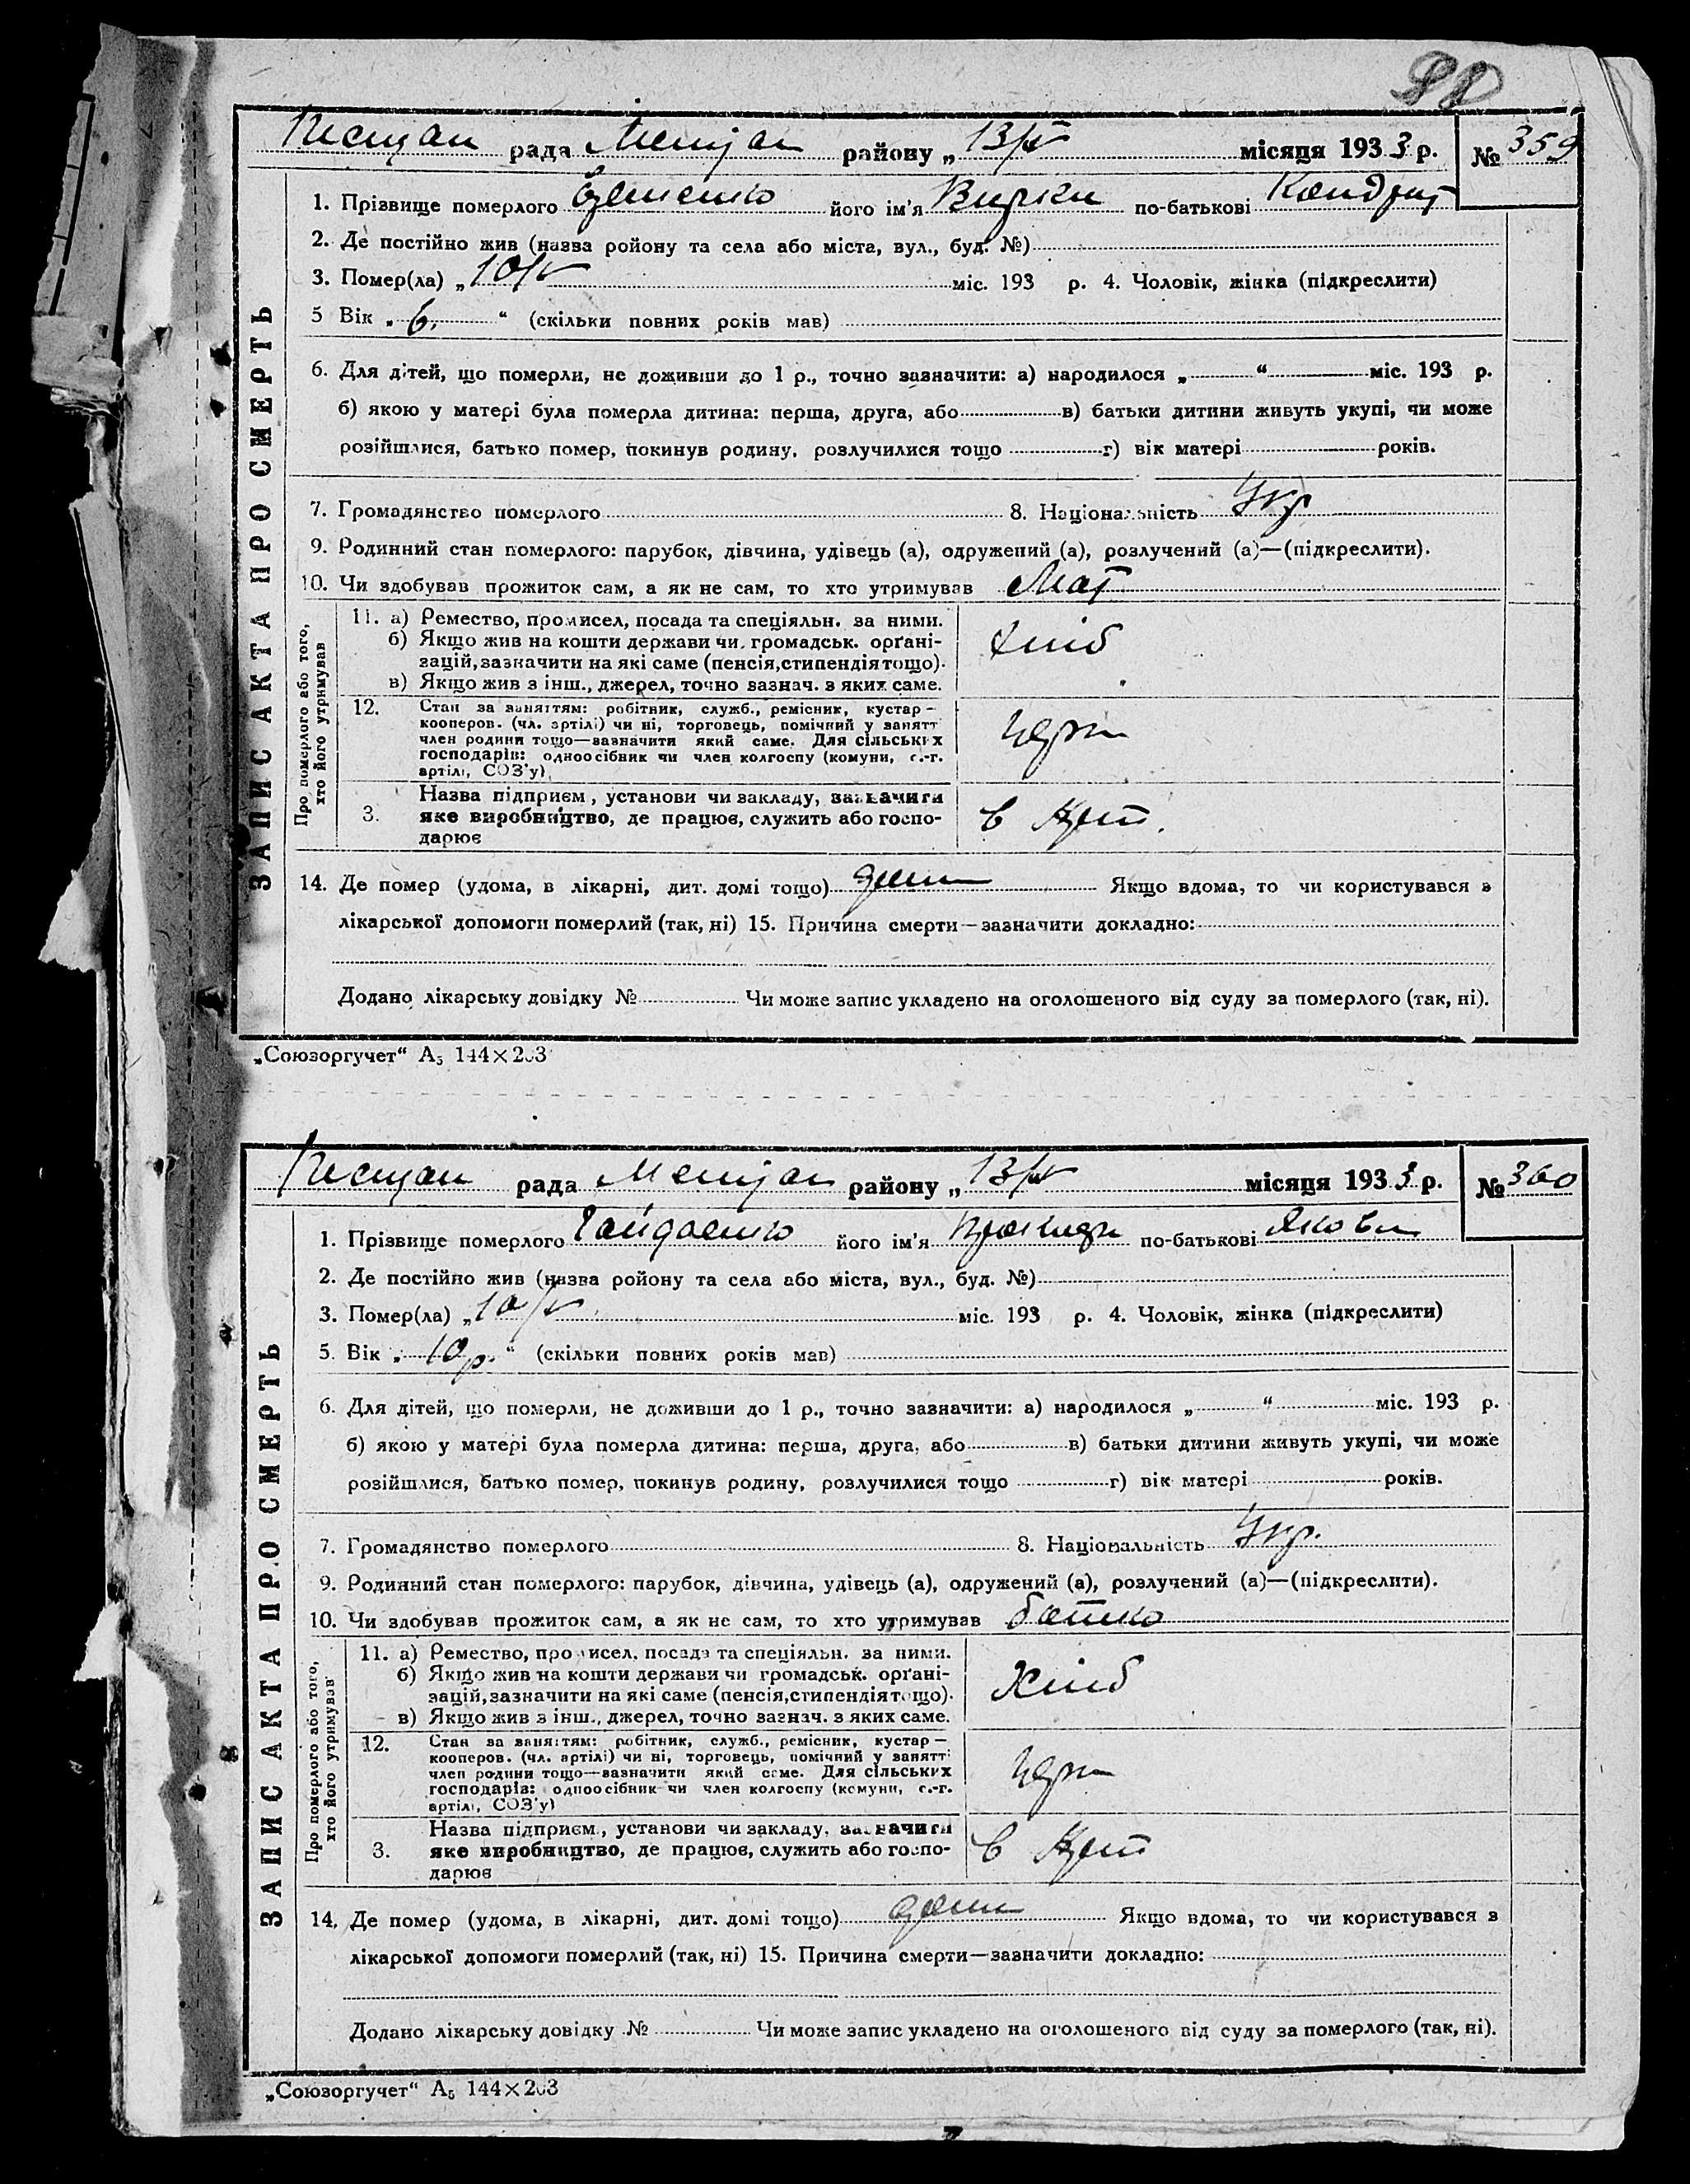 88
рада району „13/V місяця 1933 р. № 359
ЗАПИС АКТА ПРО СМЕРТЬ
1. Прізвище померлого його ім'я по-батькові Кондрат
2. Де постійно жив (назва ройону та села або міста, вул., буд. №)
3. Помер(ла) „10/V міс. 193 р. 4. Чоловік, жінка (підкреслити)
5 Вік „6. “ (скільки повних років мав)
6. Для дітей, що померли, не доживши до 1 р., точно зазначити: а) народилося „ “ міс. 193 р.
б) якою у матері була померла дитина: перша, друга, або в) батьки дитини живуть укупі, чи може
розійшлися, батько помер, покинув родину, розлучилися тощо г) вік матері років.
7. Громадянство померлого 8. Національність Укр
9. Родинний стан померлого: парубок, дівчина, удівець (а), одружений (а), розлучений (а)—(підкреслити).
10. Чи здобував прожиток сам, а як не сам, то хто утримував Мат
Про померлого або того, хто його утримував
11. а) Ремество, промисел, посада та спеціяльн. за ними.
б) Якщо жив на кошти держави чи громадськ. орґані-
зацій, зазначити на які саме (пенсія, стипендія тощо).
в) Якщо жив з інш., джерел, точно зазнач. з яких саме.
хліб
12. Стан за заняттям: робітник, служб., ремісник, кустар—
кооперов. (чл. артілі) чи ні, торговець, помічний у занятт
член родини тощо—зазначити який саме. Для сільських
господарів: одноосібник чи член колгоспу (комуни, с.-г.
артілі, СОЗ'у)
3. Назва підприєм., установи чи закладу, зазначити
яке виробництво, де працює, служить або госпо-
дарює
в
14. Де помер (удома, в лікарні, дит. домі тощо) дома Якщо вдома, то чи користувався з
лікарської допомоги померлий (так, ні) 15. Причина смерти—зазначити докладно:
Додано лікарську довідку № Чи може запис укладено на оголошеного від суду за померлого (так, ні).
„Союзоргучет“ А5 144×203
рада району „13/V місяця 1933 р. № 360
ЗАПИС АКТА ПРО СМЕРТЬ
1. Прізвище померлого Гайдаенко його ім'я по-батькові Якови
2. Де постійно жив (назва ройону та села або міста, вул., буд. №)
3. Помер(ла) „10/V міс. 193 р. 4. Чоловік, жінка (підкреслити)
5. Вік „10 р. “ (скільки повних років мав)
6. Для дітей, що померли, не доживши до 1 р., точно зазначити: а) народилося „ “ міс. 193 р.
б) якою у матері була померла дитина: перша, друга, або в) батьки дитини живуть укупі, чи може
розійшлися, батько помер, покинув родину, розлучилися тощо г) вік матері років.
7. Громадянство померлого 8. Національність Укр.
9. Родинний стан померлого: парубок, дівчина, удівець (а), одружений (а), розлучений (а)—(підкреслити).
10. Чи здобував прожиток сам, а як не сам, то хто утримував батько
Про померлого або того, хто його утримував
11. а) Ремество, промисел, посада та спеціяльн. за ними.
б) Якщо жив на кошти держави чи громадськ. орґані-
зацій, зазначити на які саме (пенсія, стипендія тощо).
в) Якщо жив з інш., джерел, точно зазнач. з яких саме.
Хліб
12. Стан за заняттям: робітник, служб., ремісник, кустар—
кооперов. (чл. артілі) чи ні, торговець, помічний у занятт
член родини тощо—зазначити який саме. Для сільських
господарів: одноосібник чи член колгоспу (комуни, с.-г.
артілі, СОЗ'у)
3. Назва підприєм., установи чи закладу, зазначити
яке виробництво, де працює, служить або госпо-
дарює
в
14. Де помер (удома, в лікарні, дит. домі тощо) дома Якщо вдома, то чи користувався з
лікарської допомоги померлий (так, ні) 15. Причина смерти—зазначити докладно:
Додано лікарську довідку № Чи може запис укладено на оголошеного від суду за померлого (так, ні).
„Союзоргучет“ А5 144×203